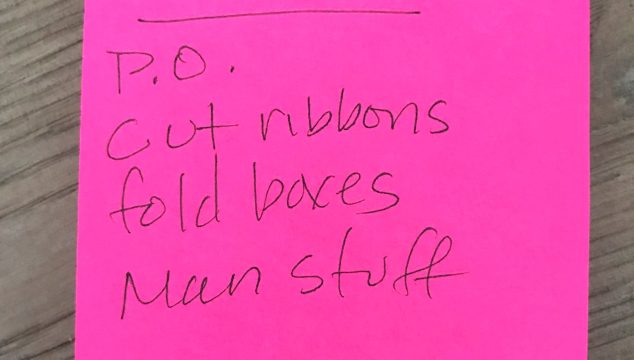 P.O.
cut ribbons
fold boxes
Man stuff